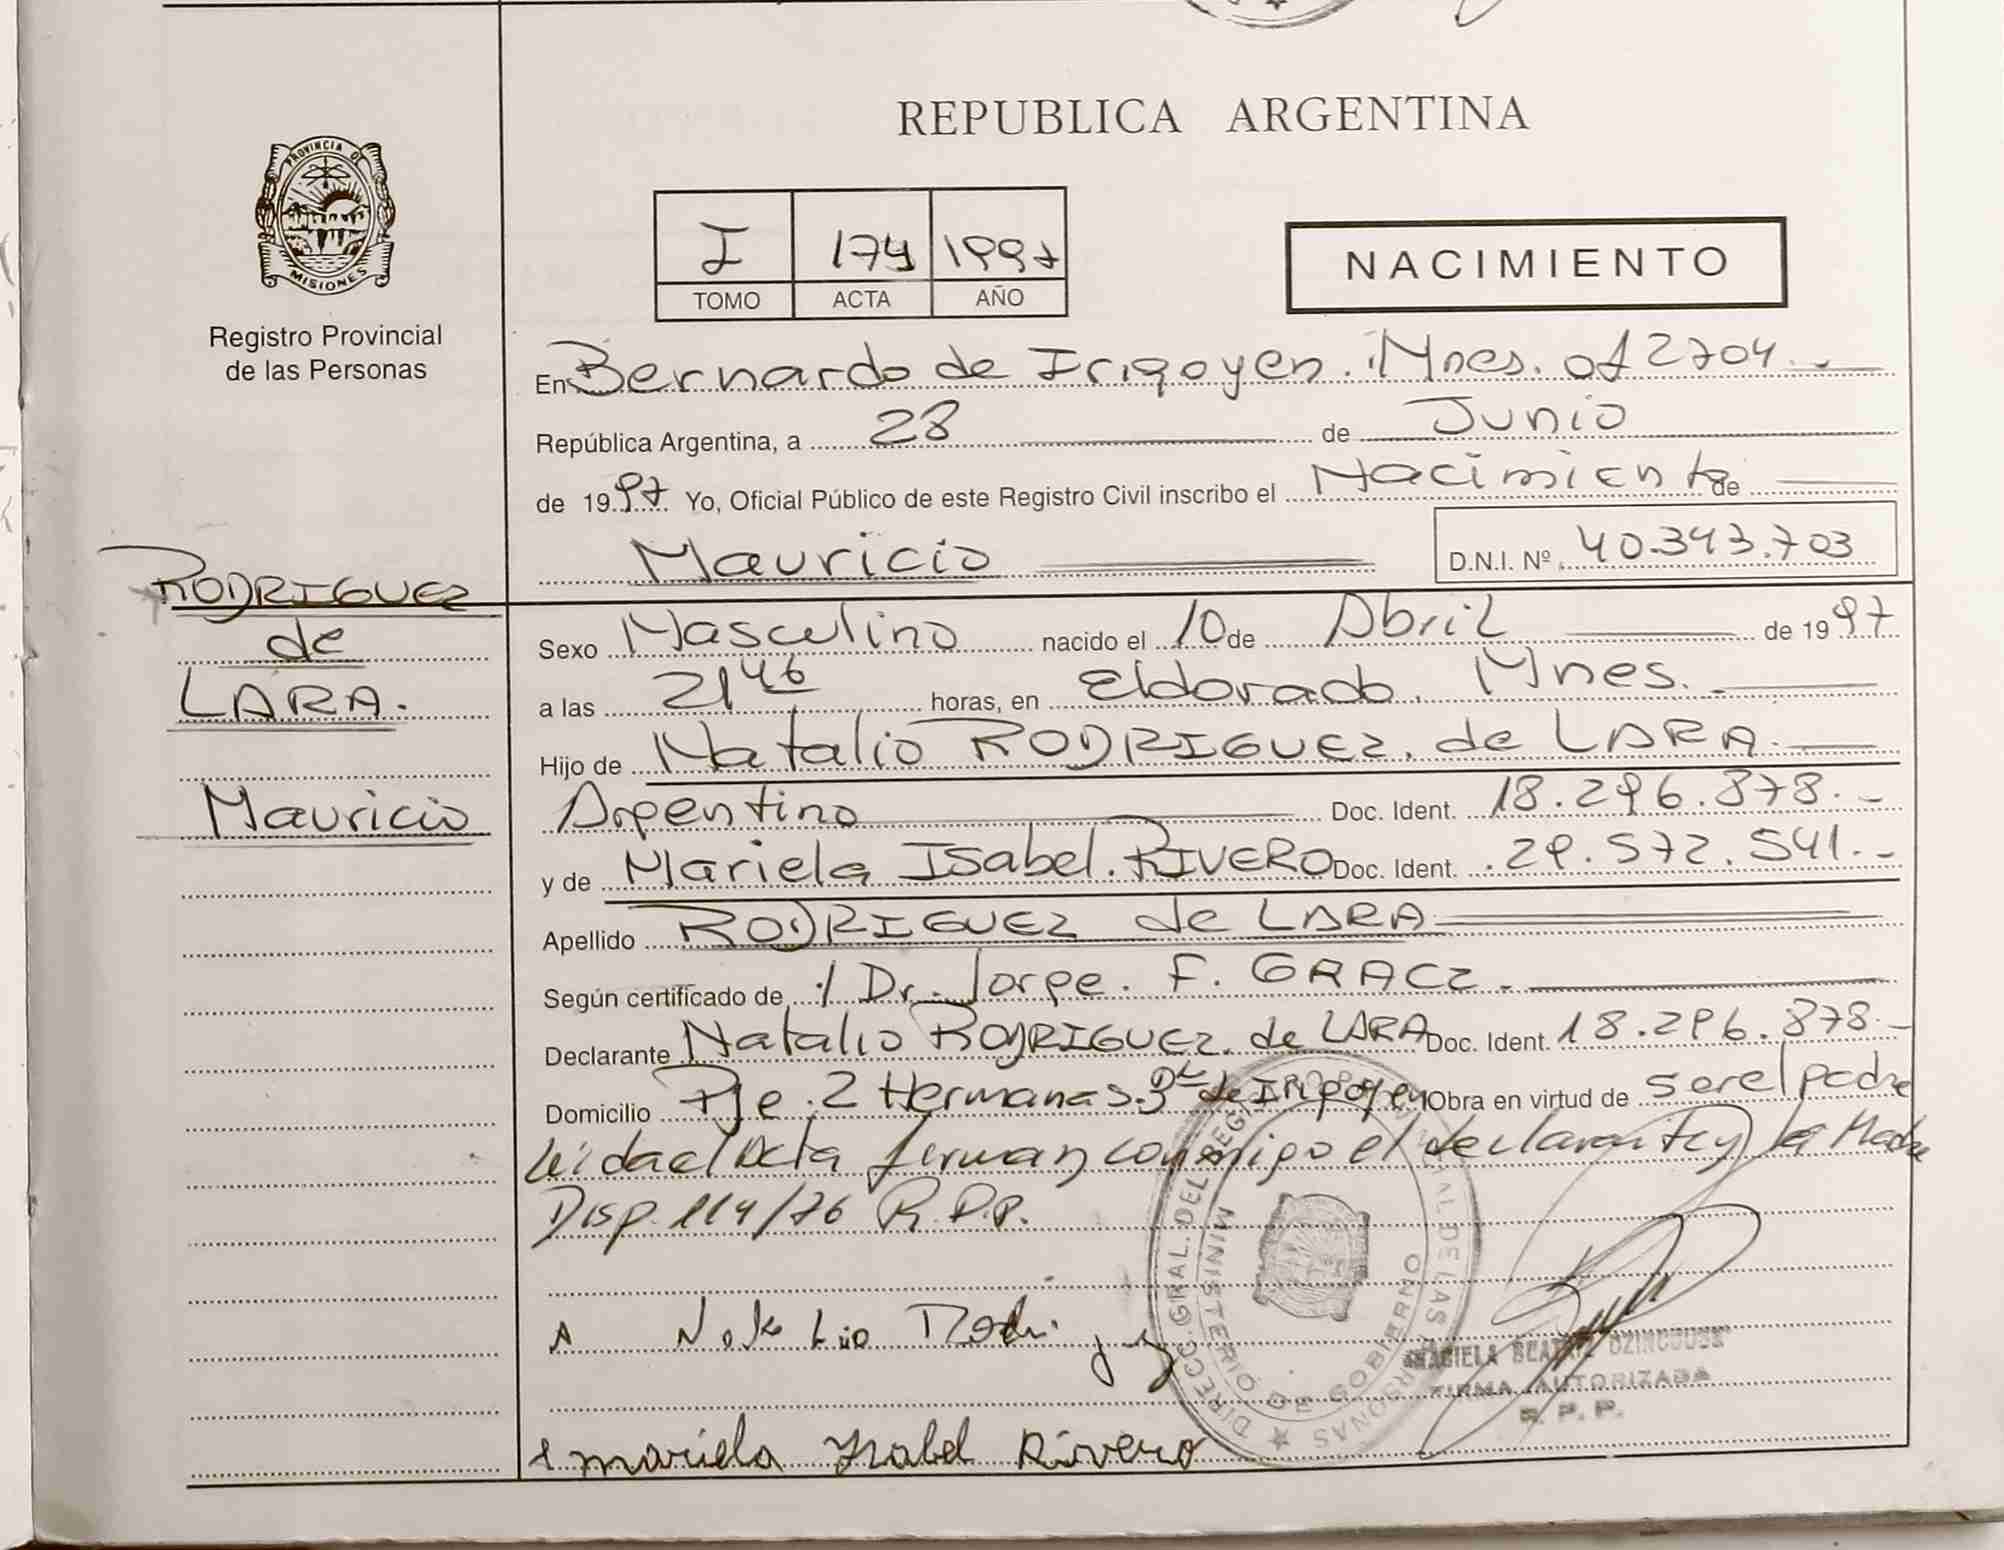 REPUBLICA ARGENTINA
PROVINCIA DE
MISIONES
Registro Provincial
de las Personas
I 174 1997
TOMO ACTA AÑO
NACIMIENTO
En Bernardo de Irigoyen. Mnes. of 2704.-
República Argentina, a 28 de Junio
de 1997 Yo, Oficial Público de este Registro Civil inscribo el Nacimiento de
Mauricio D.N.I. Nº 40.343.703
RODRIGUEZ
de
LARA.
Mauricio
Sexo Masculino nacido el 10 de Abril de 1997
a las 21 46 horas, en Eldorado. Mnes.-
Hijo de Natalio RODRIGUEZ. de LARA.
Argentino Doc. Ident. 18.296.878.-
y de Mariela ISabel. RIVERO Doc. Ident. 29.572.541.-
Apellido RODRIGUEZ de LARA
Según certificado de ./ Dr. Jorge. F. GRACZ.
Declarante Natalio RODRIGUEZ. de LARA Doc. Ident. 18.296.878.-
Domicilio Pje. 2 Hermanas. Bdo de IRigoyen Obra en virtud de ser el padre
leída el Acta firman conmigo el declarante y la Madre
Disp. 114/76 R.P.P.
A Natalio Rodriguez
DIRECC. GRAL. DEL REGISTRO PROVINCIAL DE LAS PERSONAS
MINISTERIO DE GOBIERNO
GRACIELA BEATRIZ
FIRMA AUTORIZADA
R. P. P.
mariela Isabel Rivero